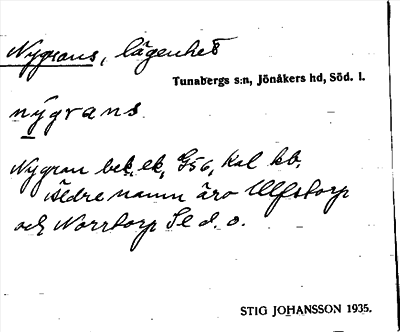 Nygrans, lägenhet
Tunabergs s:n, Jönåkers hd, Söd. l.
nỳgrans
Nygran bek. ek, G56, Kal kb.
Äldre namn äro Ulfstorp
och Norrtorp Se d. o.
STIG JOHANSSON 1935.